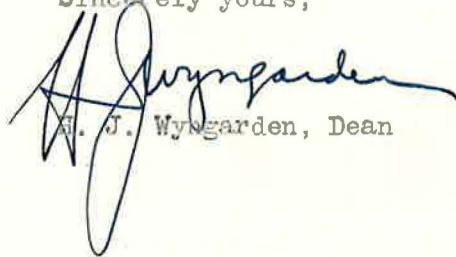 Sincerely yours,
H J Wyngarden
H. J. Wyngarden, Dean